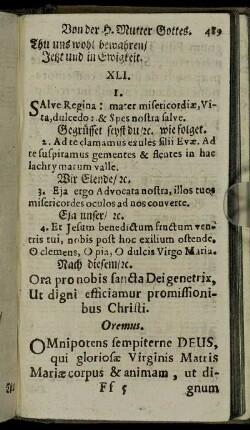 Von der H. Mutter Gottes. 489
Thu uns wohl bewahren/
Jetzt und in Ewigkeit.
XLI.
1.
SAlve Regina: mater misericordiæ, Vi-
ta, dulcedo: & Spes nostra salve.
Gegrüsset seyst du/ ꝛc. wie folget.
2. Ad te clamamus exules filii Evæ. Ad
te suspiramus gementes & flentes in hac
lachrymarum valle.
Wir Elende/ ꝛc.
3. Eja ergo Advocata nostra, illos tuos
misericordes oculos ad nos converte.
Eja unser/ ꝛc.
4. Et Jesum benedictum fructum ven-
tris tui, nobis post hoc exilium ostende.
O clemens, O pia, O dulcis Virgo Maria.
Nach diesem/ ꝛc.
Ora pro nobis sancta Dei genetrix,
Ut digni efficiamur promissioni-
bus Christi.
Oremus.
OMnipotens sempiterne DEUS,
qui gloriosæ Virginis Matris
Mariæ corpus & animam, ut di-
Ff 5 gnum